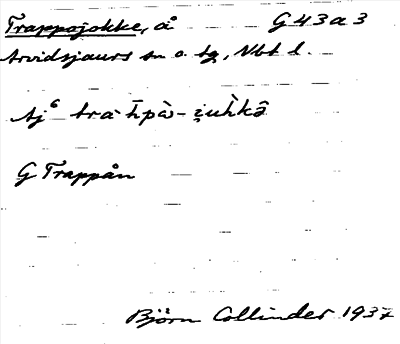 Trappojokke, å G43a3
Arvidsjaurs sn o. tg, Nbt l.
Aj⁶
G Trappån
Björn Collinder 1937